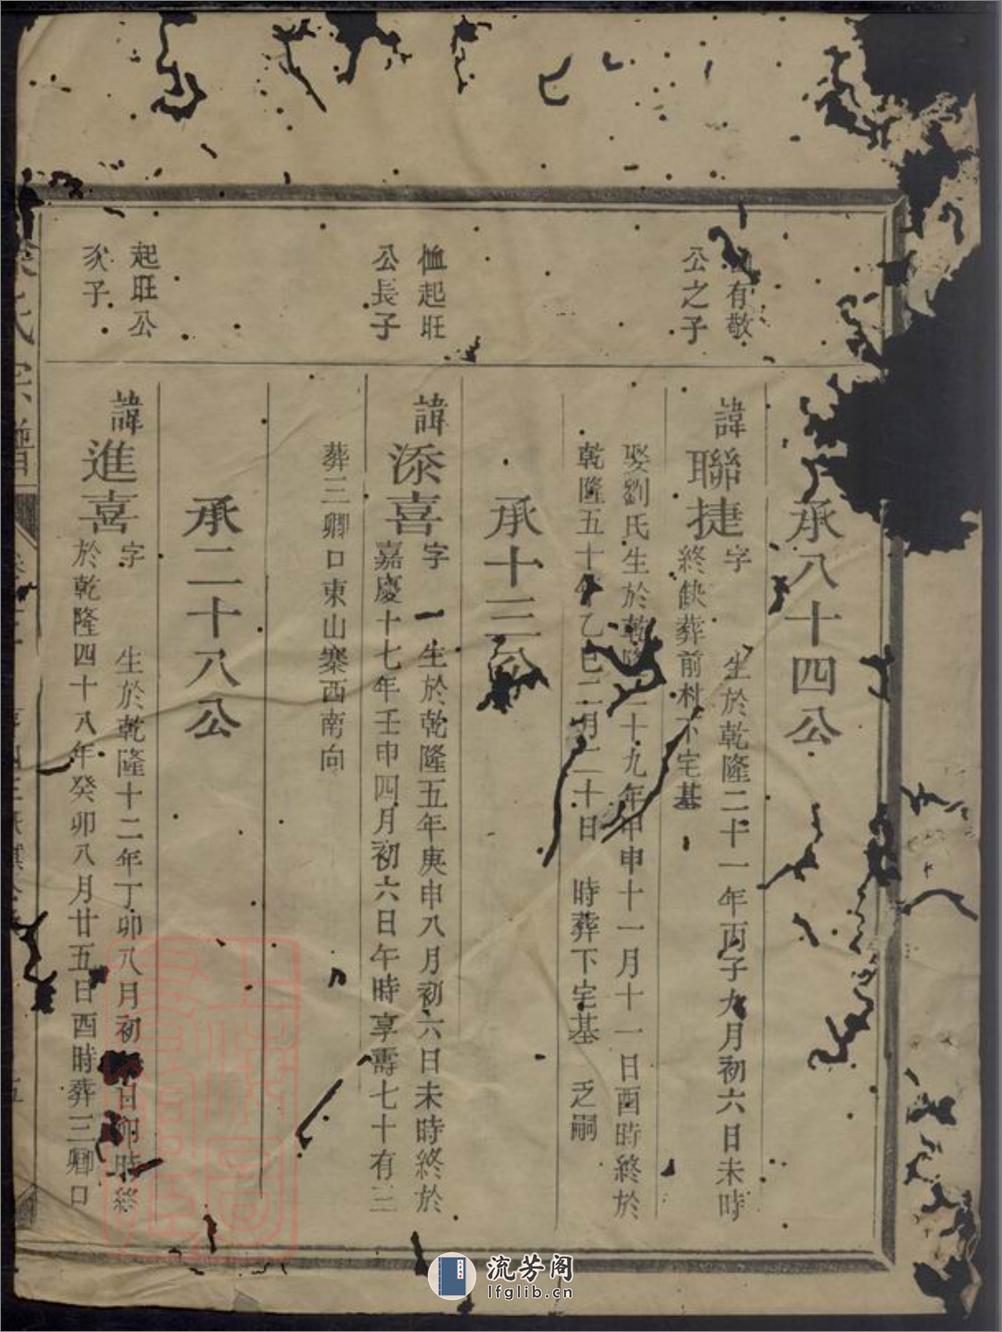 承八十四公
有敬
公之子
諱聯捷字 生於乾隆二十一年丙子九月初六日未時
終缺葬前村下宅基
娶劉氏生於乾隆二十九年甲申十一月十一日酉時終於
乾隆五十年乙巳二月二十日 時葬下宅基 乏嗣
承十三公
恤起旺
公長子
諱添喜字 生於乾隆五年庚申八月初六日未時終於
嘉慶十七年壬申四月初六日午時享壽七十有三
葬三卿口東山寨西南向
承二十八公
起旺公
次子
諱進喜字 生於乾隆十二年丁卯八月初 日卯時終
於乾隆四十八年癸卯八月廿五日酉時葬三卿口
氏宗譜
流芳阁
lfglib.cn